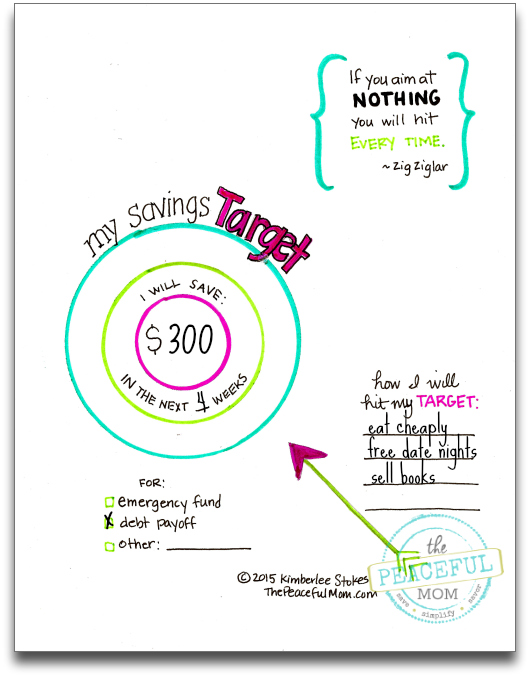 If you aim at
NOTHING
you will hit
EVERY TIME.
~ Zig Ziglar
my savings Target
I WILL SAVE:
$300
IN THE NEXT 4 WEEKS
how I will
hit my TARGET:
eat cheaply
free date nights
sell books
FOR:
emergency fund
X debt payoff
other:
© 2015 Kimberlee Stokes
ThePeacefulMom.com
the
PEACEFUL
MOM
save simplify savor